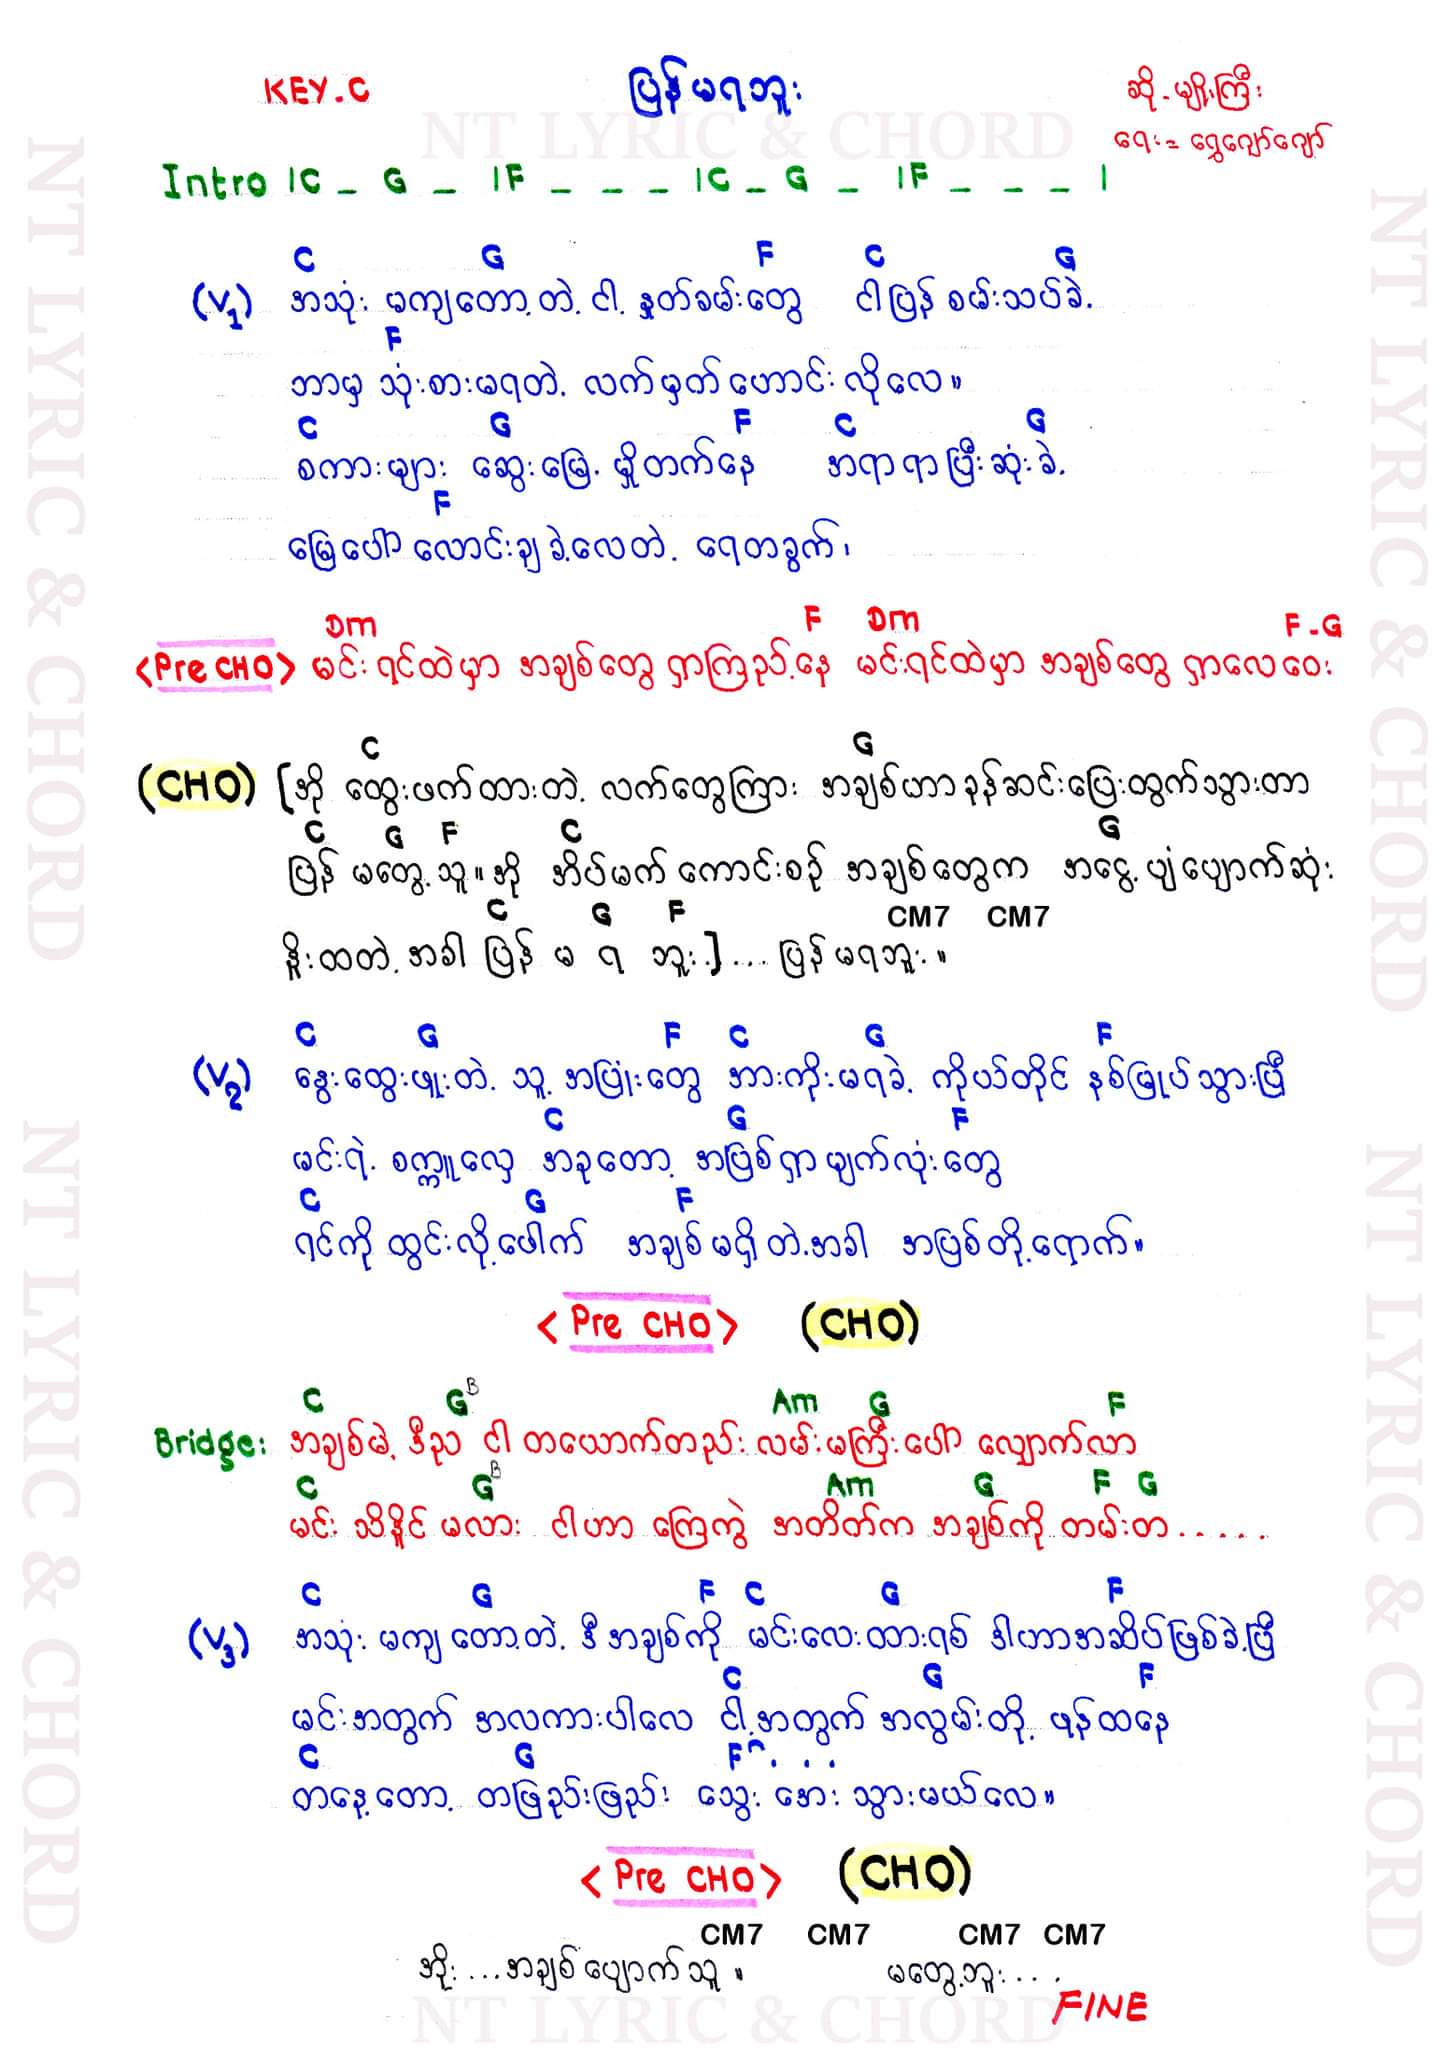 KEY.C
ပြန်မရဘူး
ဆို - မျိုးကြီး
ရေး = ရွှေဂျော်ဂျော်
NT LYRIC & CHORD
Intro |C _ G _ |F _ _ _ |C _ G _ |F _ _ _ |
C G F C G
(V1) အသုံး မကျတော့တဲ့ ငါ့ နှုတ်ခမ်းတွေ ငါပြန် စမ်းသပ်ခဲ့
F
ဘာမှ သုံးစားမရတဲ့ လက်မှတ်ဟောင်းလိုလေ။
C G F C G
စကားများ ဆွေးမြေ့ မှိုတက်နေ အရာရာပြီးဆုံးခဲ့
F
မြေပေါ် လောင်းချခဲ့လေတဲ့ ရေတခွက်၊
Dm F Dm F - G
<Pre CHO> မင်းရင်ထဲမှာ အချစ်တွေ ရှာကြည့်နေ မင်းရင်ထဲမှာ အချစ်တွေ ရှာလေဝေး
C G
(CHO) [အို ထွေးဖက်ထားတဲ့ လက်တွေကြား အချစ်ဟာခုန်ဆင်းပြေးထွက်သွားတာ
C G F C G
ပြန် မတွေ့သူ။ အို အိပ်မက်ကောင်းစဉ် အချစ်တွေက အငွေ့ပျံပျောက်ဆုံး
C G F CM7 CM7
နိုးထတဲ့အခါ ပြန် မ ရ ဘူး.] .... ပြန်မရဘူး။
C G F C G F
(V2) နွေးထွေးဖူးတဲ့ သူ့ အပြုံးတွေ အားကိုးမရခဲ့ ကိုယ်တိုင် နစ်မြုပ်သွားပြီ
C G F
မင်းရဲ့ စက္ကူလှေ အခုတော့ အပြစ်ရှာမျက်လုံးတွေ
C G F
ရင်ကို ထွင်းလို့ဖေါက် အချစ်မရှိတဲ့အခါ အပြစ်တို့ရောက်။
<Pre CHO> (CHO)
C G B Am G F
Bridge: အချစ်မဲ့ ဒီည ငါ တယောက်တည်း လမ်းမကြီးပေါ် လျှောက်လာ
C G B Am G F G
မင်း သိနိူင် မလား ငါဟာ ကြေကွဲ အတိတ်က အချစ်ကို တမ်းတ.....
C G F C G F
(V3) အသုံး မကျ တော့တဲ့ ဒီအချစ်ကို မင်းလေးထားရစ် ဒါဟာအဆိပ်ဖြစ်ခဲ့ပြီ
C G F
မင်းအတွက် အလကားပါလေ ငါ့အတွက် အလွမ်းတို့ ဖန်ထနေ
C G F ...
တနေ့တော့ တဖြည်းဖြည်း သွေး အေး သွားမယ်လေ။
<Pre CHO> (CHO)
CM7 CM7 CM7 CM7
အိုး ...အချစ်ပျောက်သူ။ မတွေ့ဘူး...
FINE
NT LYRIC & CHORD
NT LYRIC & CHORD
NT LYRIC & CHORD
NT LYRIC & CHORD
NT LYRIC & CHORD